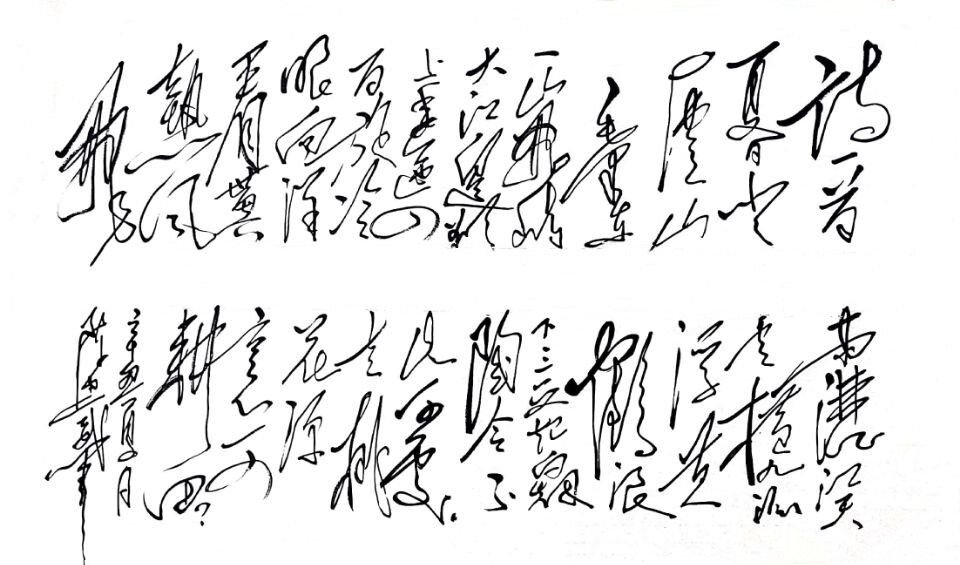 诗一首
夏日登
庐山
毛泽东
一山飞峙
大江边跃
上葱茏四
百旋冷
眼向洋
看世界
熱風
吹
雨灑江天
云横九派
浮黄
鹤浪
下三吴起烟
陶令不
知何处
去桃
花源
里可
耕田?
辛丑月